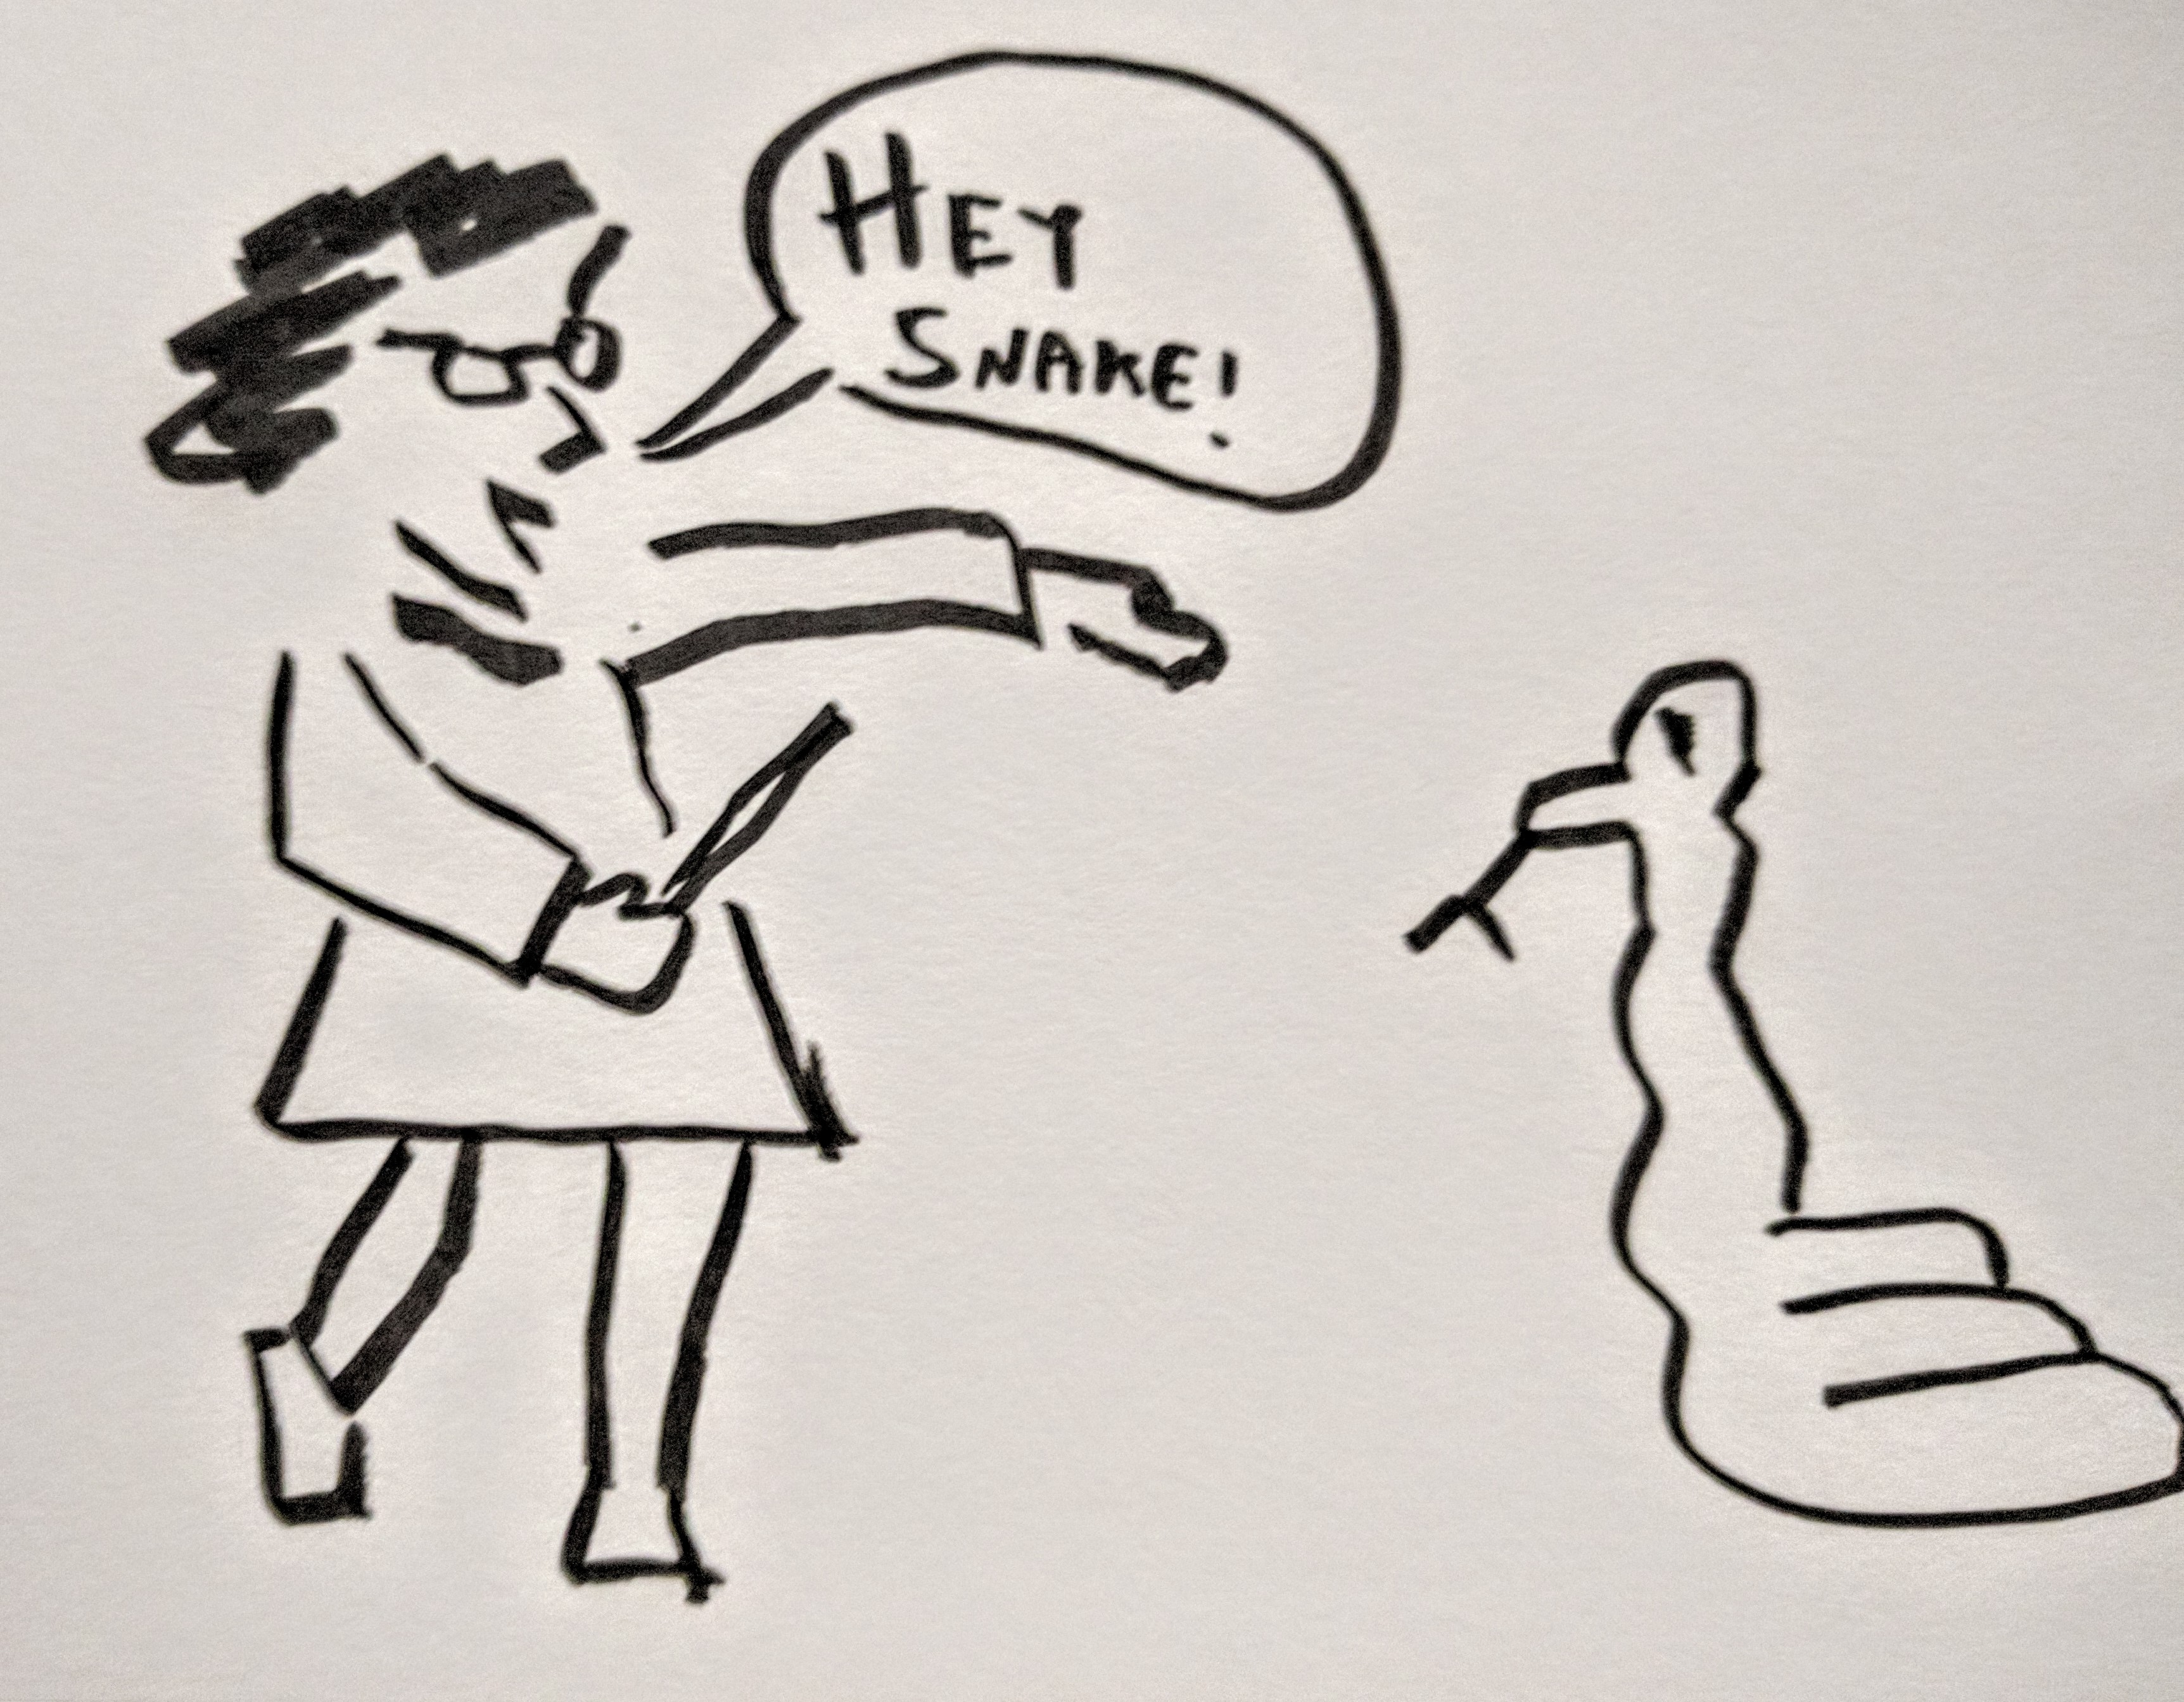 HEY
SNAKE!